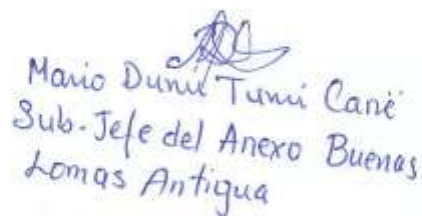 Mario Dunú Tumi Canë
Sub-Jefe del Anexo Buenas
Lomas Antigua